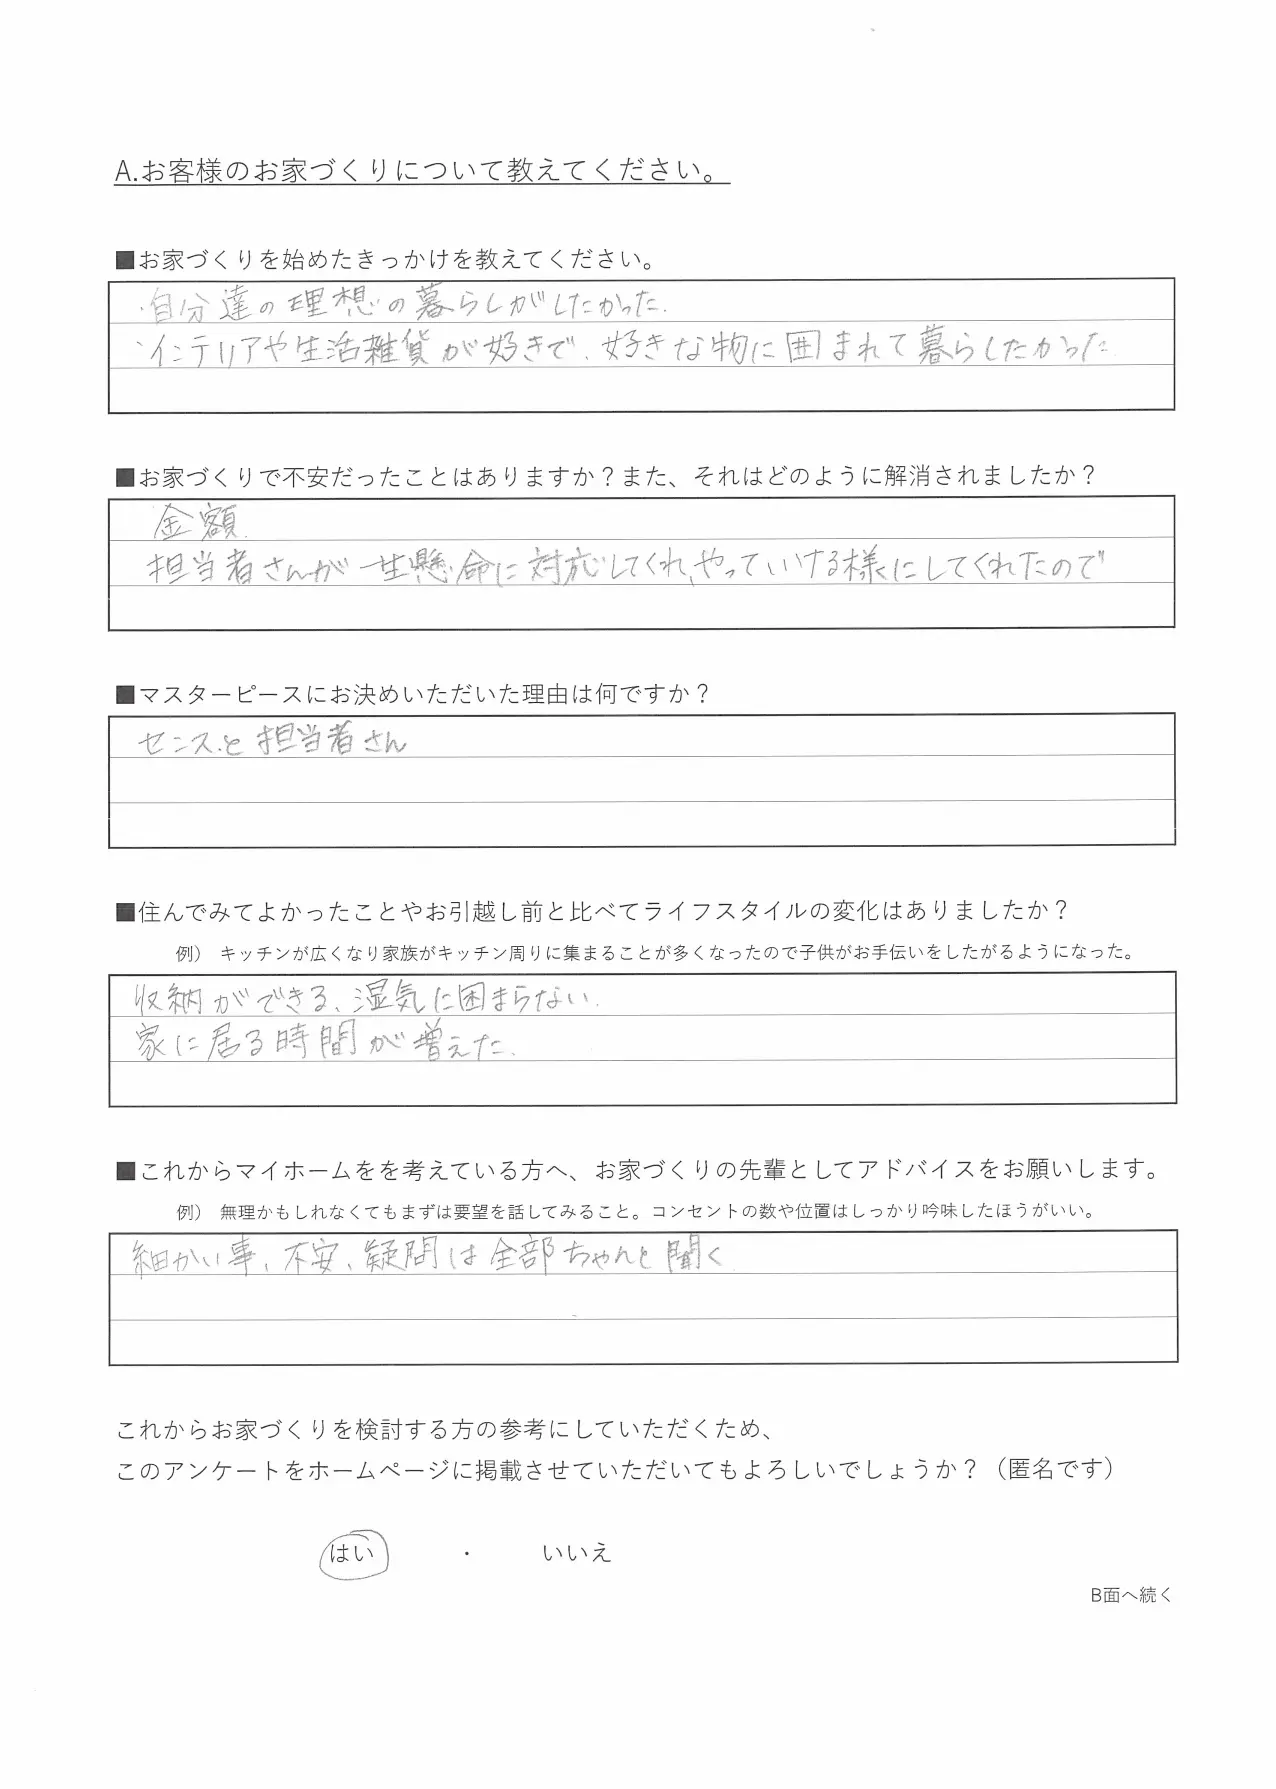 A.お客様のお家づくりについて教えてください。
■お家づくりを始めたきっかけを教えてください。
・自分達の理想の暮らしがしたかった.
・インテリアや生活雑貨が好きで、好きな物に囲まれて暮らしたかった.
■お家づくりで不安だったことはありますか？また、それはどのように解消されましたか？
金額.
担当者さんが一生懸命に対応してくれ、やっていける様にしてくれたので
■マスターピースにお決めいただいた理由は何ですか？
センスと担当者さん
■住んでみてよかったことやお引越し前と比べてライフスタイルの変化はありましたか？
例） キッチンが広くなり家族がキッチン周りに集まることが多くなったので子供がお手伝いをしたがるようになった。
収納ができる、湿気に困まらない.
家に居る時間が増えた.
■これからマイホームをを考えている方へ、お家づくりの先輩としてアドバイスをお願いします。
例） 無理かもしれなくてもまずは要望を話してみること。コンセントの数や位置はしっかり吟味したほうがいい。
細かい事、不安、疑問は全部ちゃんと聞く
これからお家づくりを検討する方の参考にしていただくため、
このアンケートをホームページに掲載させていただいてもよろしいでしょうか？（匿名です）
はい ・ いいえ
B面へ続く